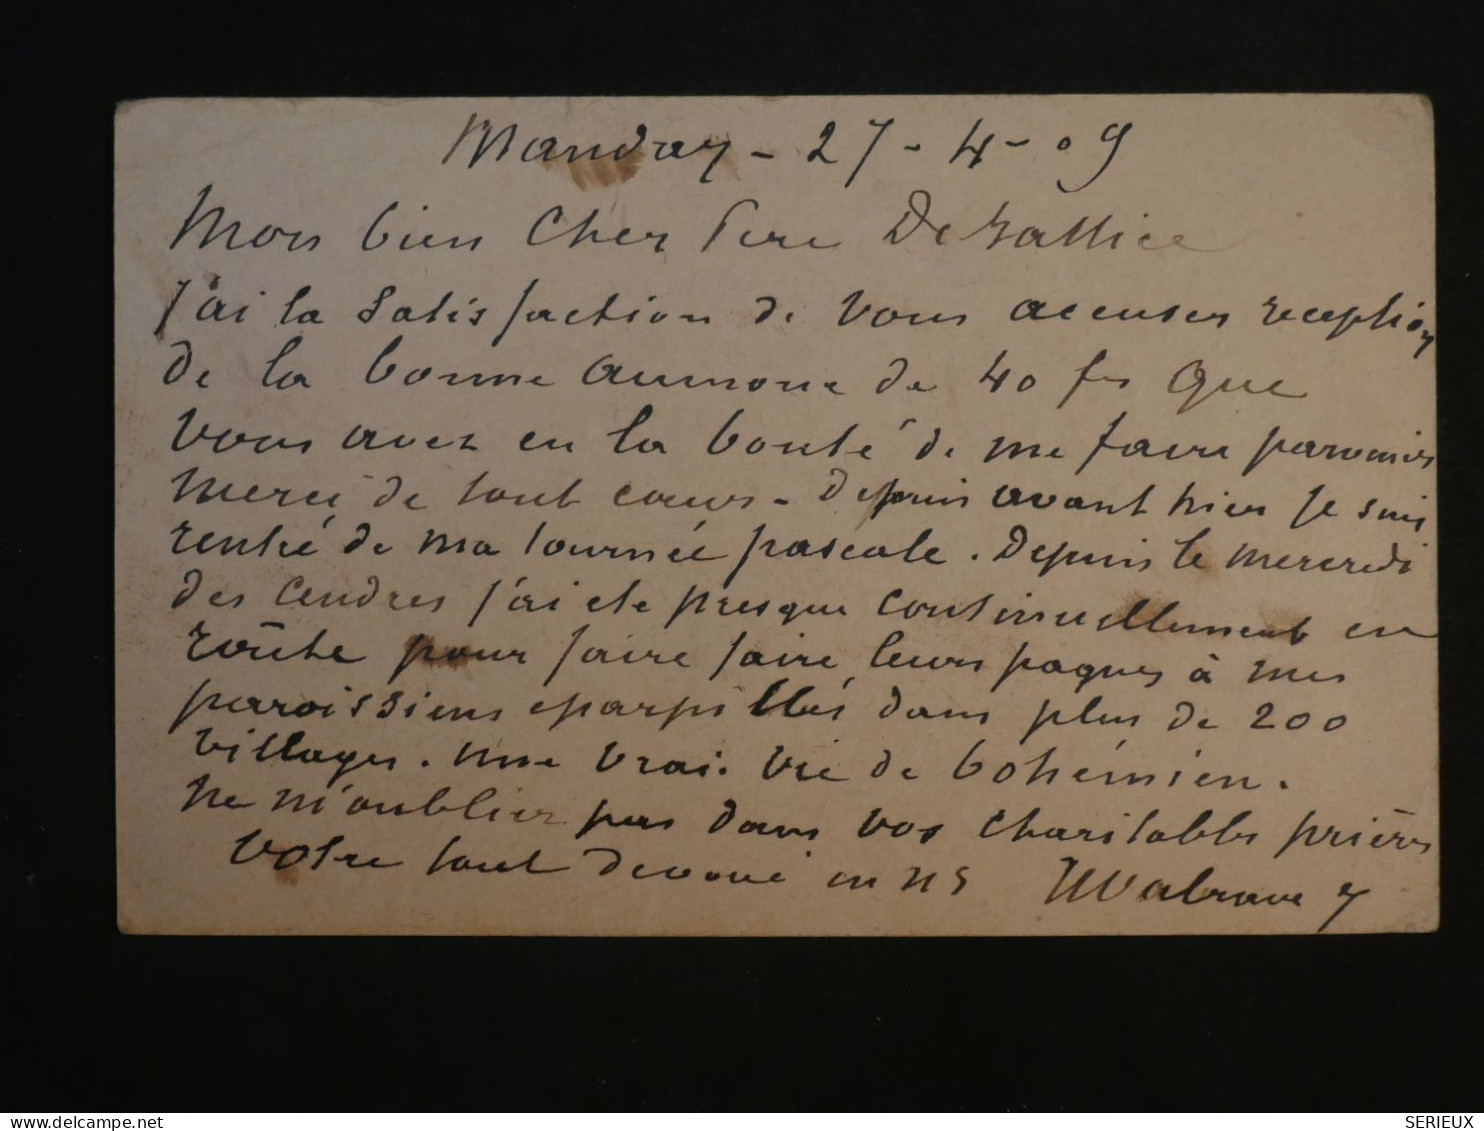 Manday - 27 - 4 - 09
Mon bien Cher Pere
J'ai la satisfaction de vous accuser reception
de la bonne aumone de 40 frs que
vous avez eu la bonté de me faire parvenir
Merci de tout cœur - Depuis avant hier je suis
rentré de ma tournée pascale. Depuis le mercredi
des cendres j'ai ete presque continuellement en
route pour faire faire leurs paques à mes
paroissiens eparpillés dans plus de 200
villages. une vrai vie de bohémien.
Ne m'oubliez pas dans vos charitables prières
Votre tout devoué en NS
SERIEUX
www.delcampe.net